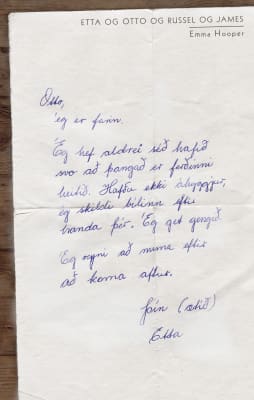 ETTA OG OTTO OG RUSSEL OG JAMES
Emma Hooper
Otto,
ég er farin.
Ég hef aldrei séð hafið
svo að þangað er ferðinni
heitið. Hafðu ekki áhyggjur,
ég skildi bílinn eftir
handa þér. Ég get gengið.
Ég reyni að muna eftir
að koma aftur.
Þín (ætíð)
Etta